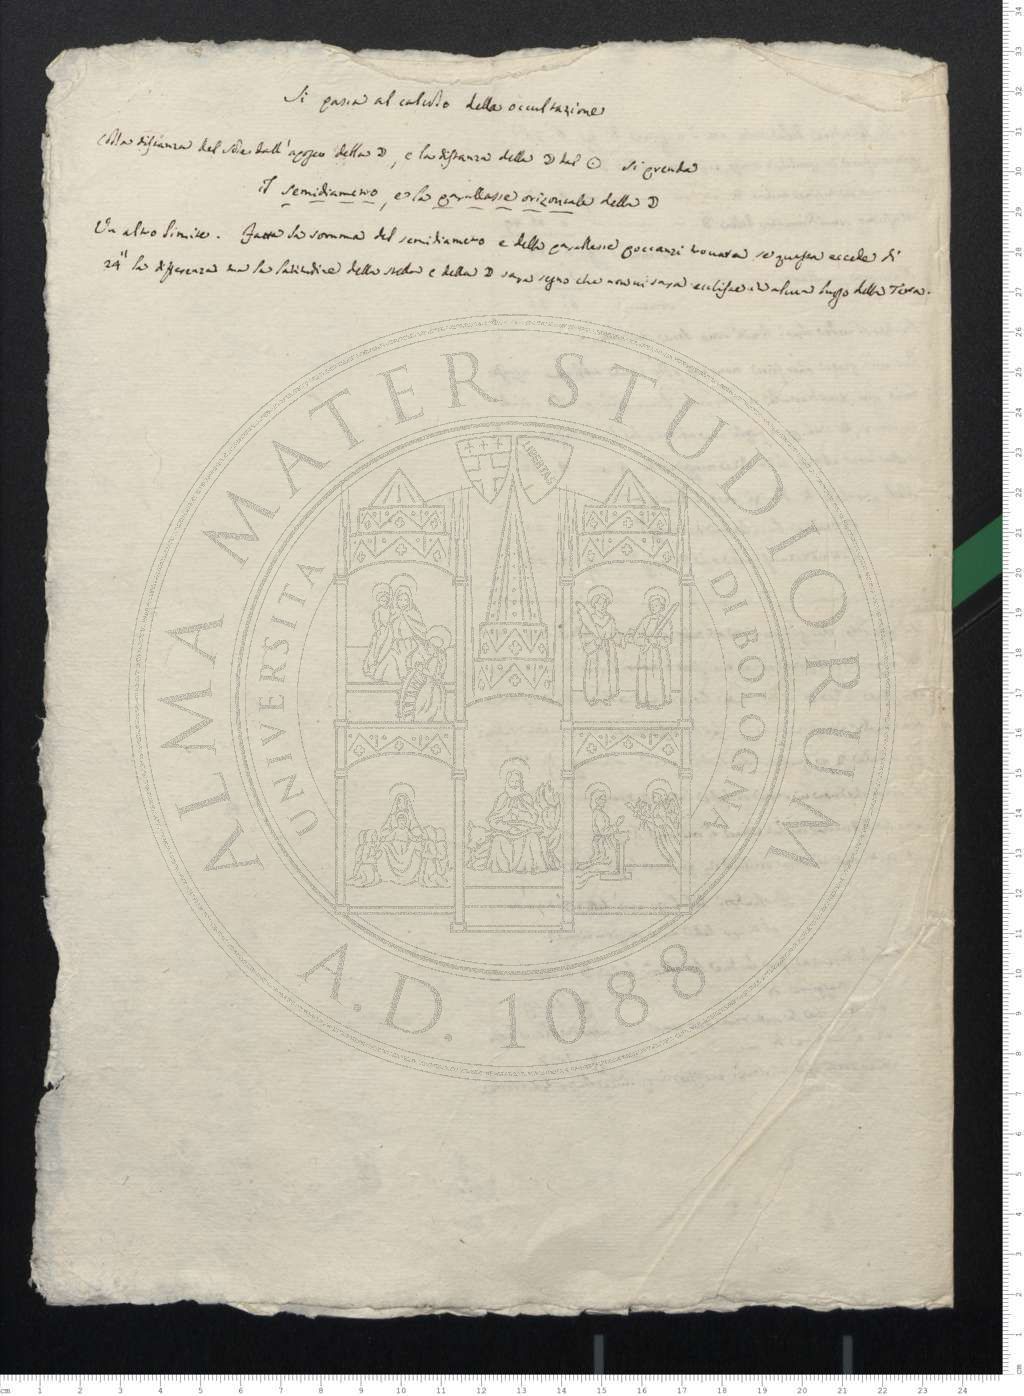 Si passa al calcolo della occultazione
Colla distanza del sole dall'apogeo della ☽, e la distanza della ☽ dal ☉ si prenda
il semidiametro, e la parallasse orizontale della ☽
Un altro limite. Fatta la somma del semidiametro e della parallasse poccanzi trovata se questa eccede di
24" la differenza tra la latitudine della stella e della ☽ sara segno che non vi sara eclisse in alcun luogo della Terra.
ALMA MATER STUDIORUM
A.D. 1088
UNIVERSITA DI BOLOGNA
LIBERTAS